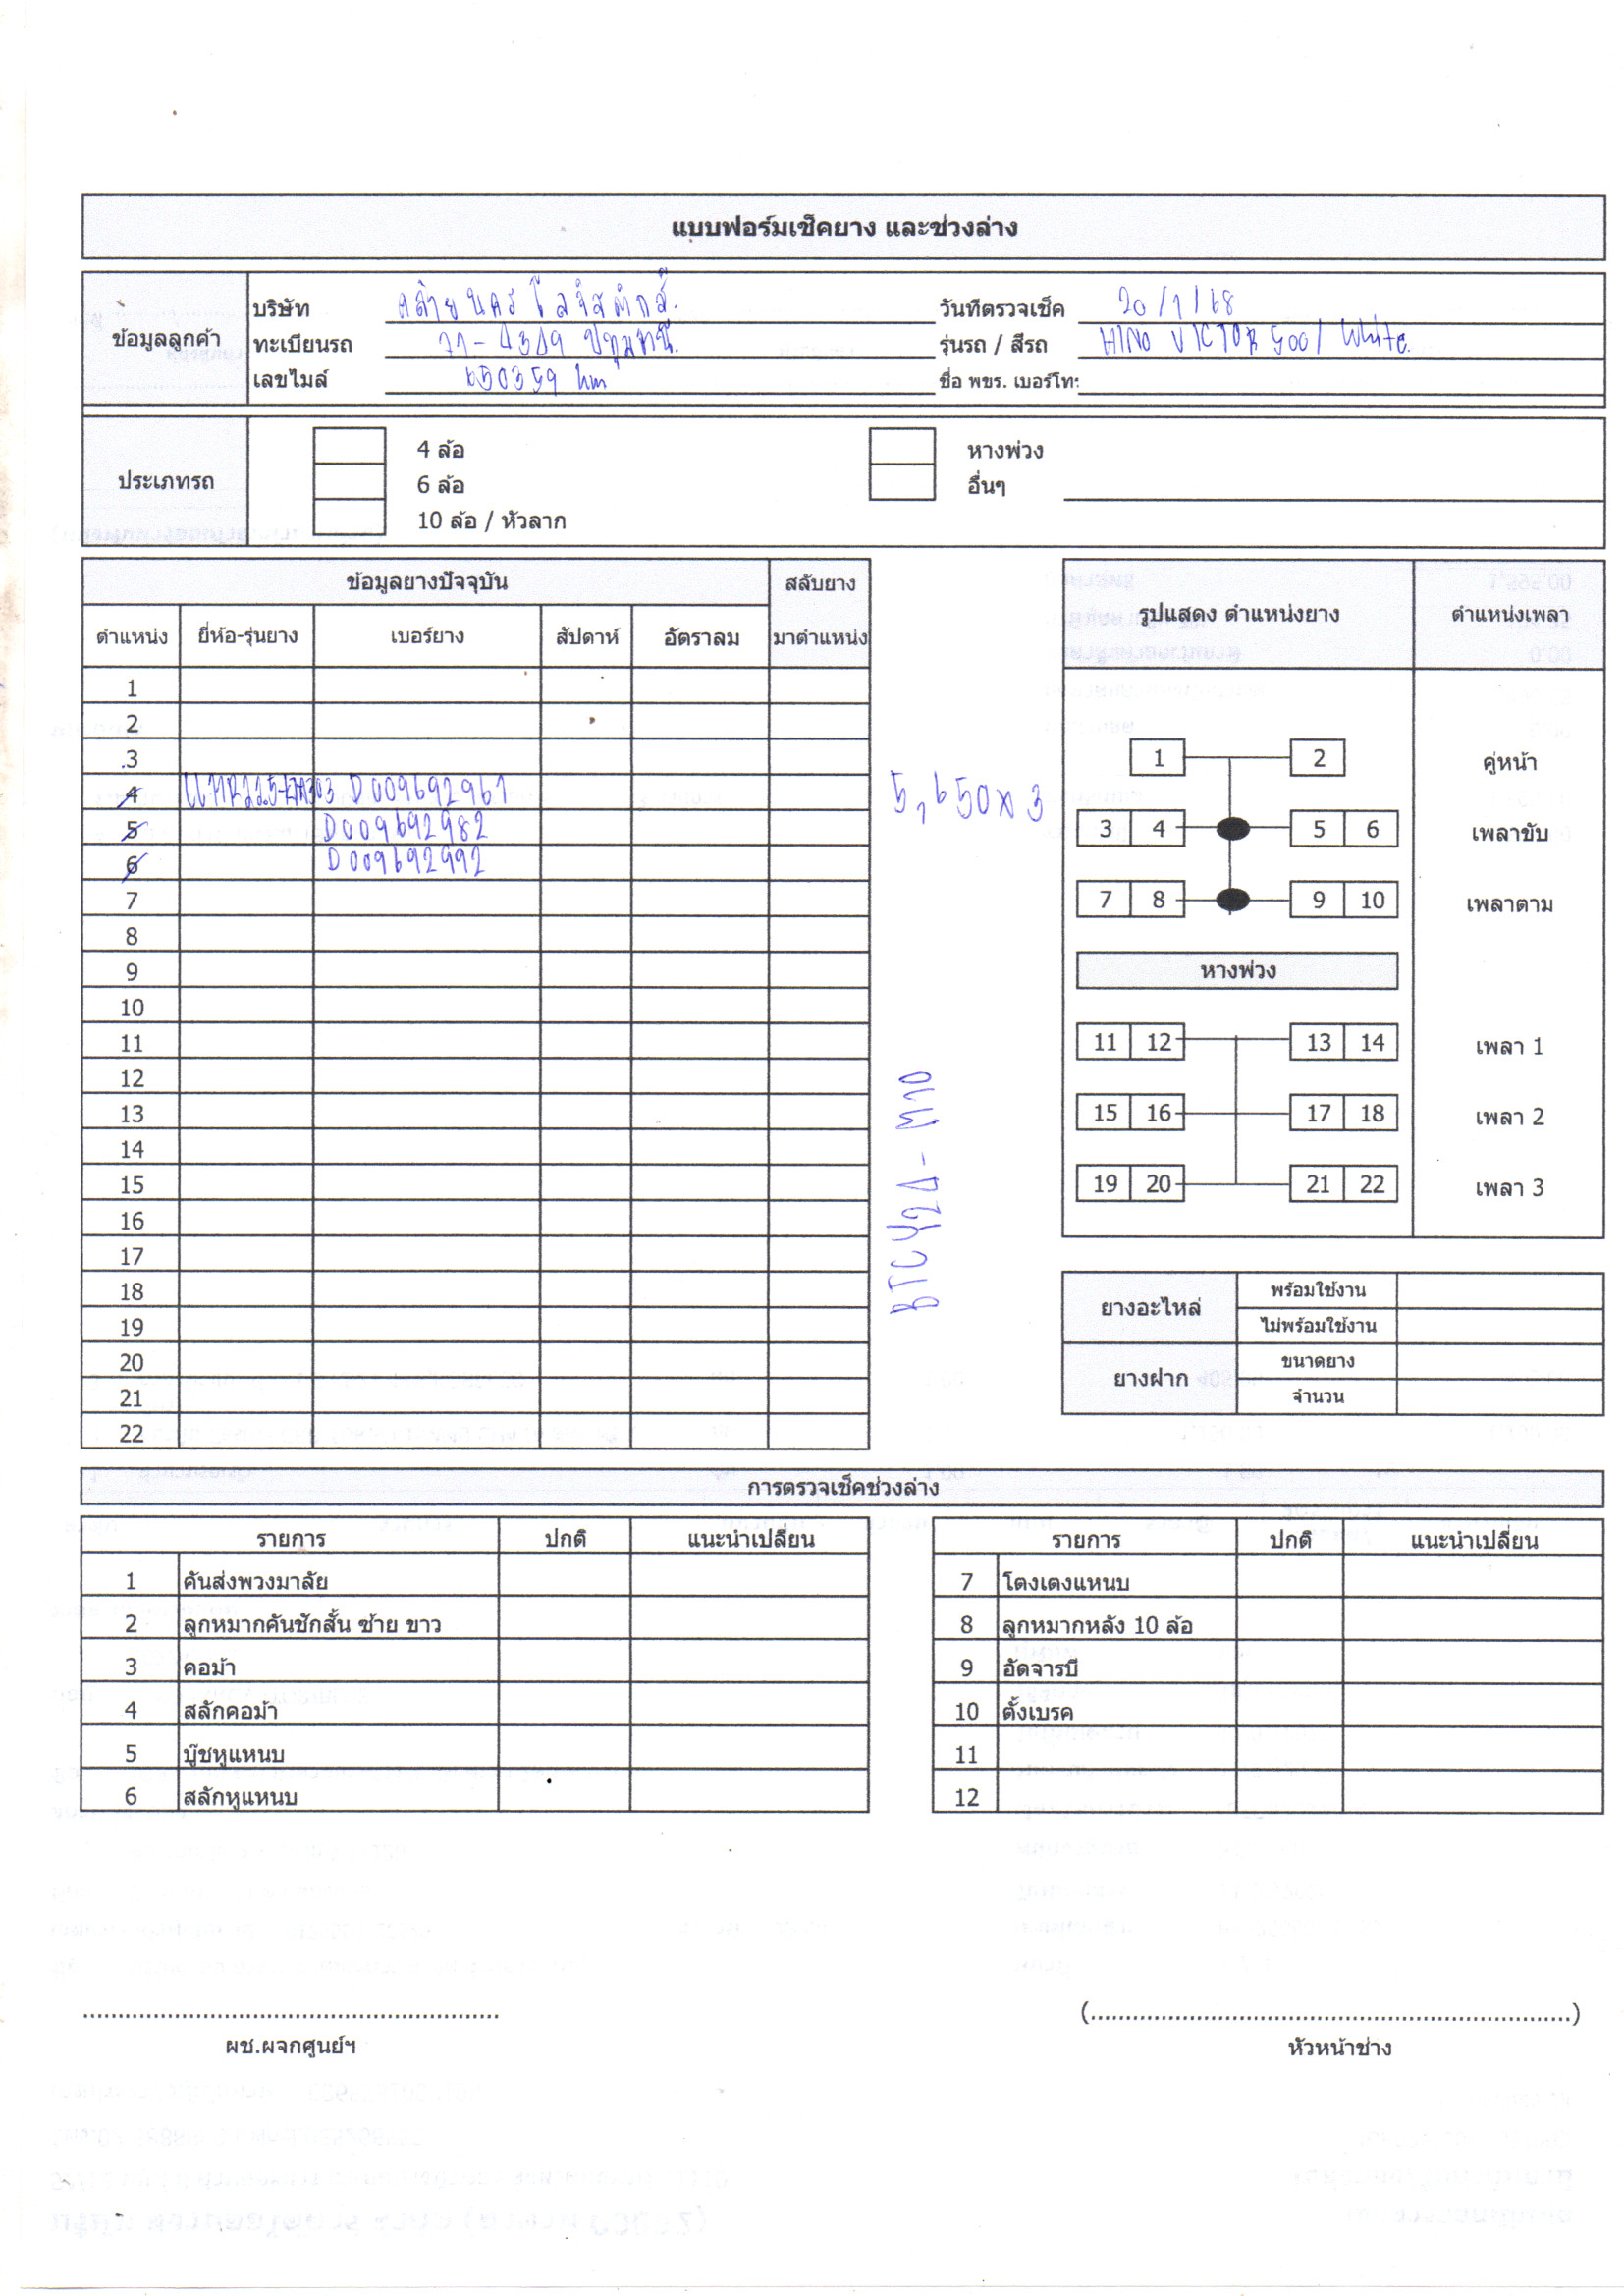 แบบฟอร์มเช็คยาง และช่วงล่าง
ข้อมูลลูกค้า
บริษัท คล้ายนคร โลจิสติกส์.
วันที่ตรวจเช็ค 20/1/68
ทะเบียนรถ 71-4349 ปทุมธานี.
รุ่นรถ / สีรถ HINO VICTOR 500/ White.
เลขไมล์ 650359 km
ชื่อ พขร. เบอร์โท:
ประเภทรถ
4 ล้อ
หางพ่วง
6 ล้อ
อื่นๆ
10 ล้อ / หัวลาก
ข้อมูลยางปัจจุบัน สลับยาง
ตำแหน่ง ยี่ห้อ-รุ่นยาง เบอร์ยาง สัปดาห์ อัตราลม มาตำแหน่ง
1
2
3
4 D009692967
5 D009692982
6 D009692992
7
8
9
10
11
12
13
14
15
16
17
18
19
20
21
22
5,650x3
รูปแสดง ตำแหน่งยาง ตำแหน่งเพลา
1 2 คู่หน้า
3 4 5 6 เพลาขับ
7 8 9 10 เพลาตาม
หางพ่วง
11 12 13 14 เพลา 1
15 16 17 18 เพลา 2
19 20 21 22 เพลา 3
ยางอะไหล่ พร้อมใช้งาน
ไม่พร้อมใช้งาน
ยางฝาก ขนาดยาง
จำนวน
การตรวจเช็คช่วงล่าง
รายการ ปกติ แนะนำเปลี่ยน
1 คันส่งพวงมาลัย
2 ลูกหมากคันชักสั้น ซ้าย ขาว
3 คอม้า
4 สลักคอม้า
5 บู๊ชหูแหนบ
6 สลักหูแหนบ
รายการ ปกติ แนะนำเปลี่ยน
7 โตงเตงแหนบ
8 ลูกหมากหลัง 10 ล้อ
9 อัดจารบี
10 ตั้งเบรค
11
12
ผช.ผจกศูนย์ฯ
(........................................)
หัวหน้าช่าง